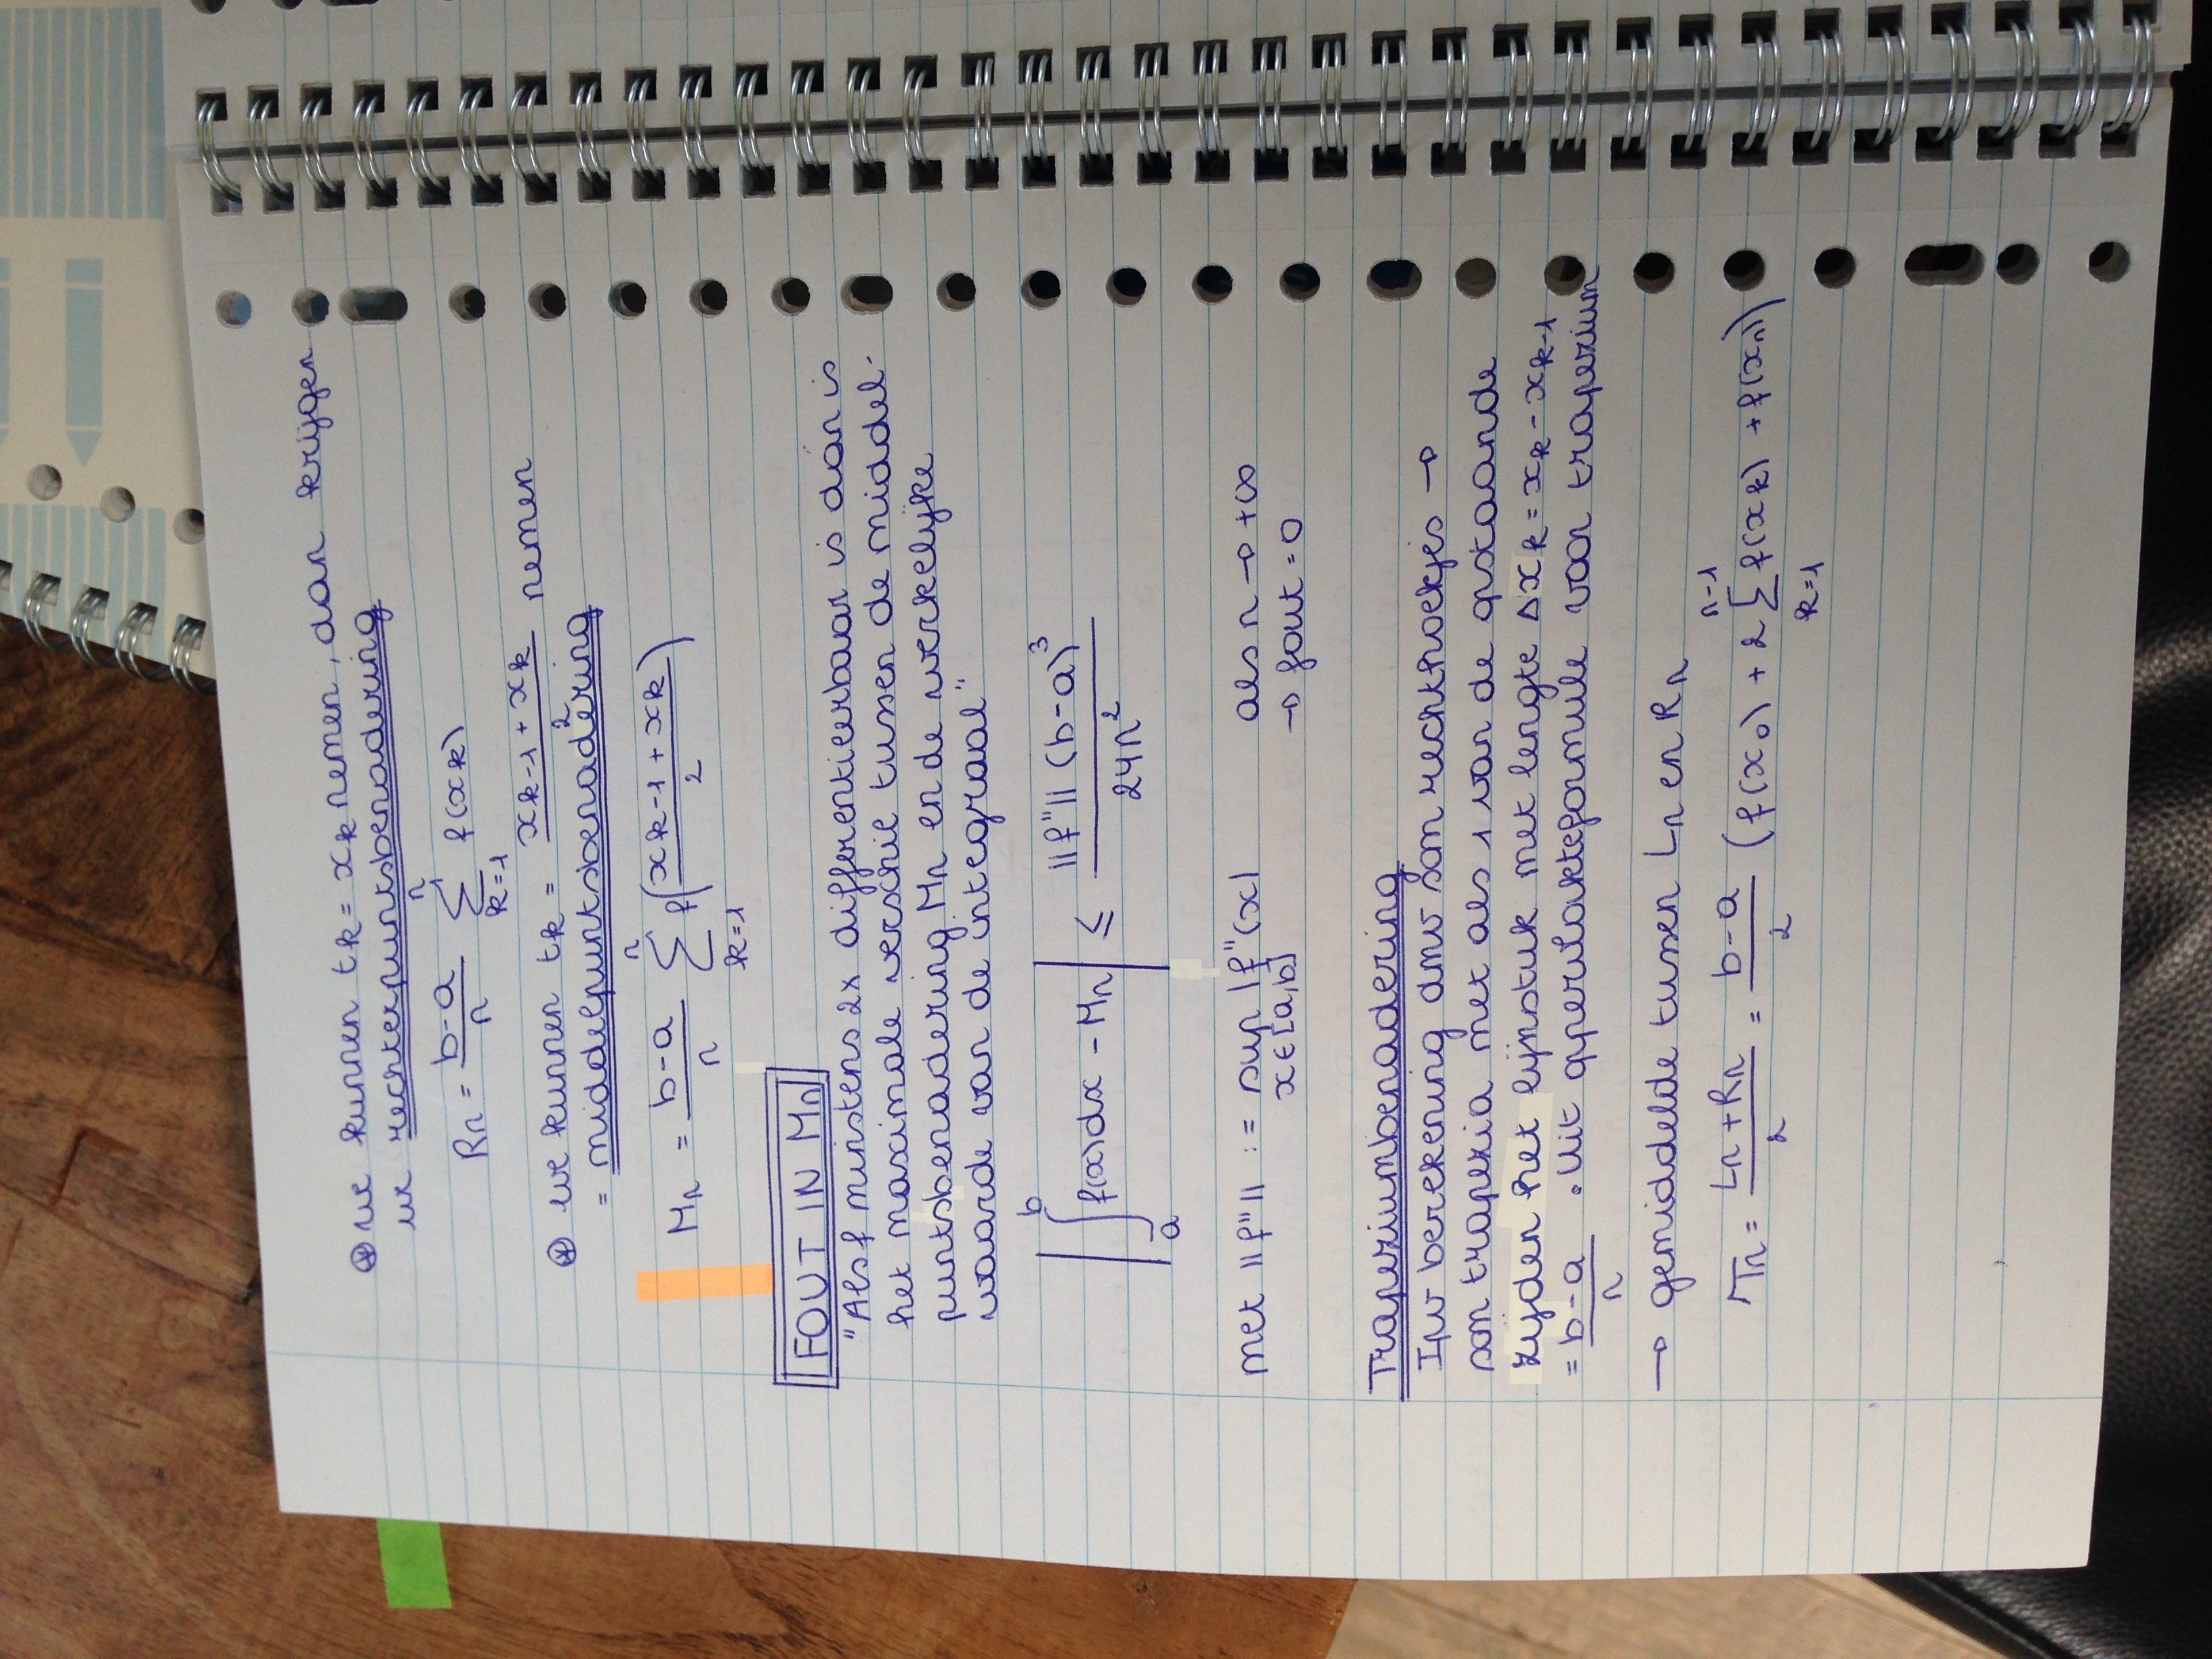 ⊛ we kunnen tk = xk nemen, dan krijgen
we rechterpuntsbenadering
Rn = (b-a)/n ∑_{k=1}^{n} f(xk)
⊛ we kunnen tk = (xk-1 + xk)/2 nemen
= middelpuntsbenadering
Mn = (b-a)/n ∑_{k=1}^{n} f((xk-1 + xk)/2)
FOUT IN Mn
"Als f minstens 2x differentieerbaar is dan is
het maximale verschil tussen de middel-
puntsbenadering Mn en de werkelijke
waarde van de integraal"
|∫_a^b f(x)dx - Mn| ≤ ||f"|| (b-a)³ / 24n²
met ||f"|| := sup |f"(x)| als n → +∞
x∈[a,b] → fout = 0
Trapeziumbenadering
Ipv berekening dmv som rechthoekjes →
som trapezia met als 1 van de opstaande
zijden het lijnstuk met lengte Δxk = xk - xk-1
= (b-a)/n . Uit oppervlakteformule voor trapezium
→ gemiddelde tussen Ln en Rn
Tn = (Ln + Rn)/2 = (b-a)/2 (f(x0) + 2 ∑_{k=1}^{n-1} f(xk) + f(xn))